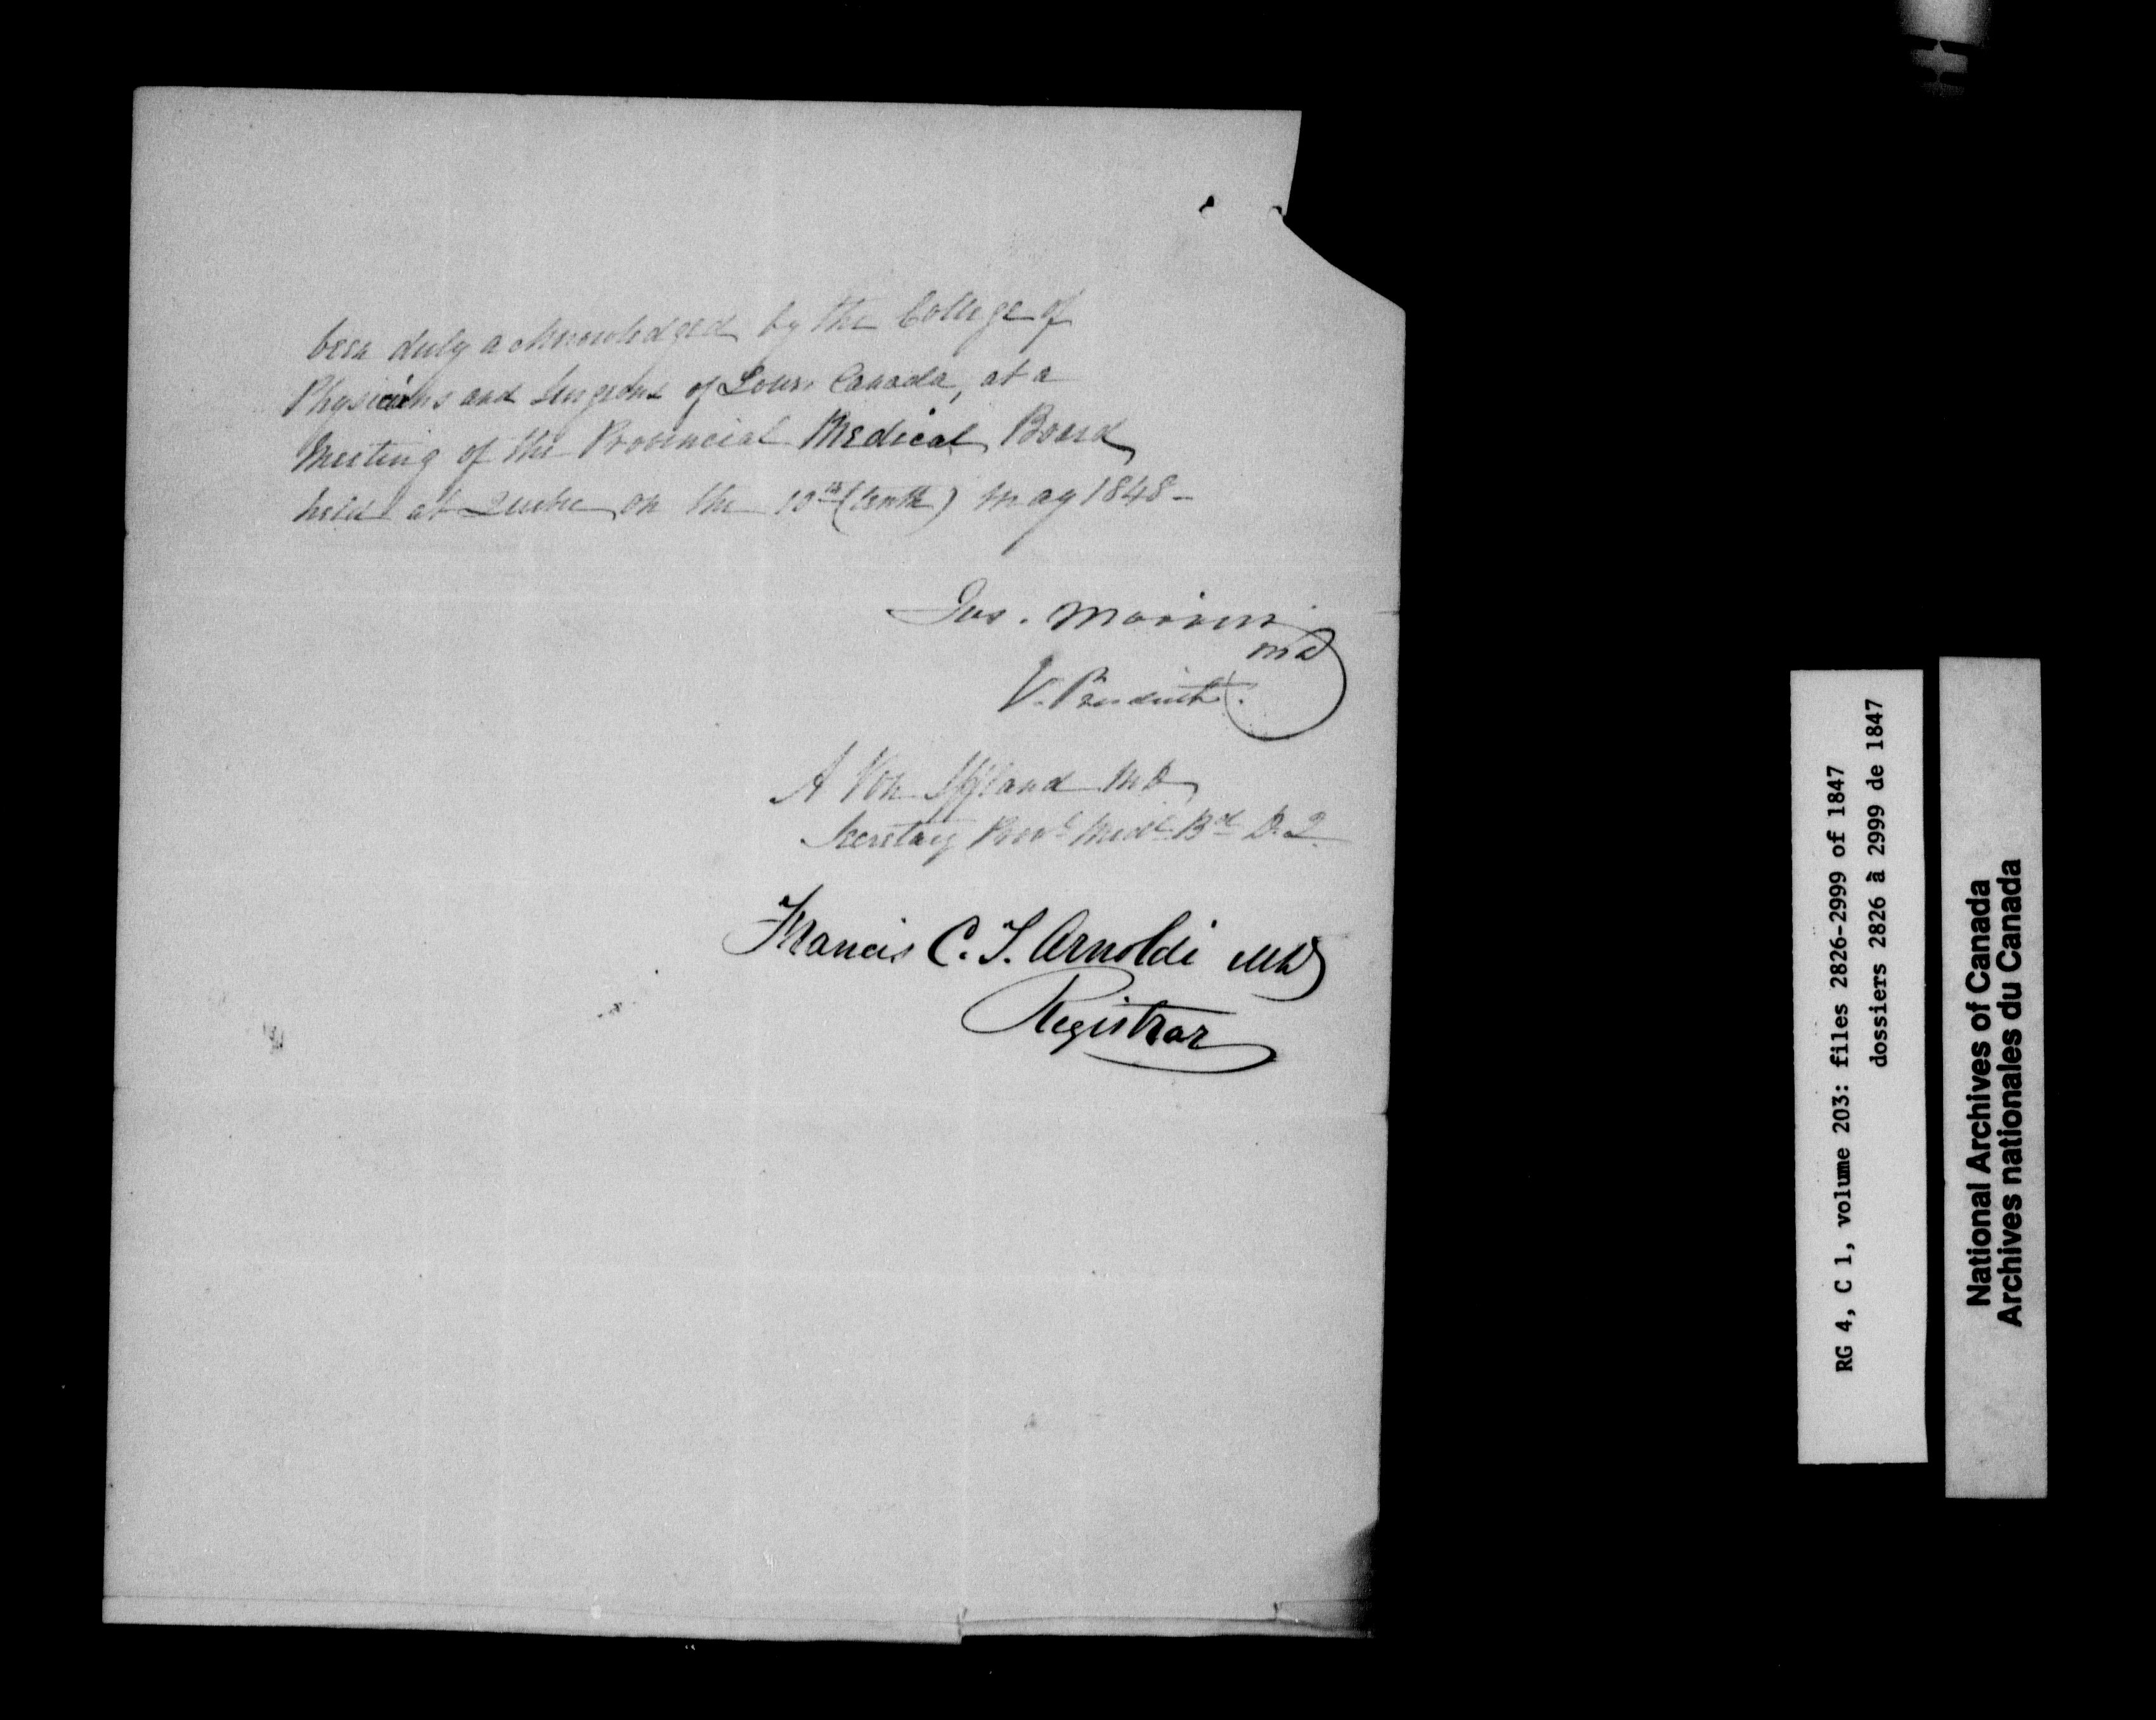 been duly acknowledged by the College of
Physicians and Surgeons of Lower Canada, at a
Meeting of the Provincial Medical Board
held at Quebec on the 10th (tenth) May 1848 -
Jos. Morrin
MD
V. President.
A Von Iffland MD
Secretary Provl Medl Bd D. Q.
Francis C. T. Arnoldi MD
Registrar
RG 4, C 1, volume 203: files 2826-2999 of 1847
dossiers 2826 à 2999 de 1847
National Archives of Canada
Archives nationales du Canada